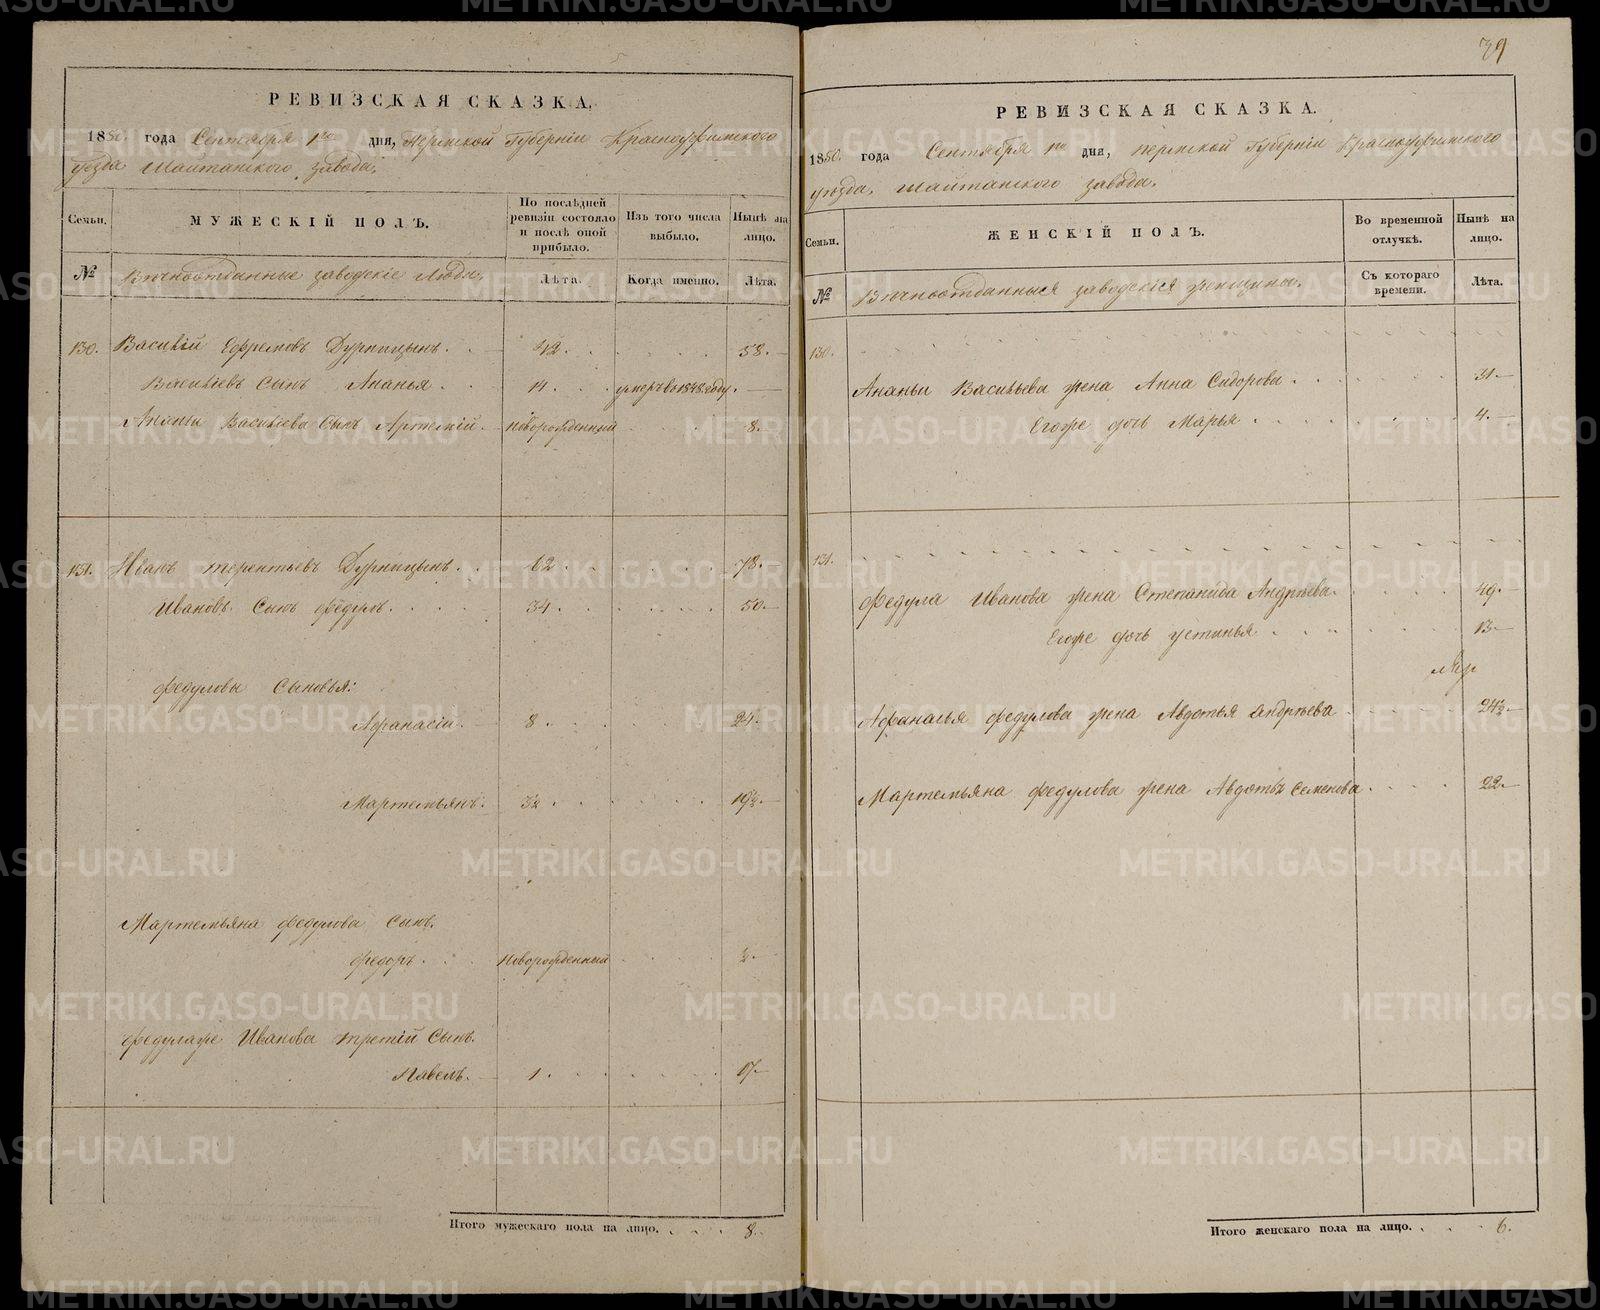 39
РЕВИЗСКАЯ СКАЗКА.
1850. года Сентября 1го дня, Пермской Губернiи Красноуфимскаго
уѣзда Шайтанскаго завода.
Семьи.
МУЖЕСКIЙ ПОЛЪ.
По послѣдней ревизiи состояло и послѣ оной прибыло.
Изъ того числа выбыло.
Нынѣ на лицо.
№
Вѣчноотданные заводскiе люди.
Лѣта.
Когда именно.
Лѣта.
130. Василiй Ефремовъ Дурницынъ. 42. 58.
Васильевъ Сынъ Ананья. 14. умеръ въ 1848 году.
Ананьи Васильева Сынъ Артемiй. новорожденный 8.
131. Иванъ Терентьевъ Дурницынъ. 62. 78.
Ивановъ Сынъ 34. 50.
Федуловы Сыновья:
Афанасiй. 8. 24.
Мартемьянъ. 19½.
Мартемьяна Федулова Сынъ.
Федоръ. новорожденный ½.
Федулаже Иванова третiй Сынъ.
Павелъ. 1.
Итого мужескаго пола на лицо. 8.
РЕВИЗСКАЯ СКАЗКА.
1850. года Сентября 1го дня, Пермской Губернiи Красноуфимскаго
уѣзда, Шайтанскаго завода.
Семьи.
ЖЕНСКIЙ ПОЛЪ.
Во временной отлучкѣ.
Нынѣ на лицо.
№
Вѣчноотданныя заводскiя женщины.
Съ котораго времени.
Лѣта.
130.
Ананьи Васильева жена Анна Сидорова. 31.
Егоже дочь Марья 4.
131.
Федула Иванова жена Степанида Андрѣева. 49.
Егоже дочь Устинья 13.
Афанасья Федулова жена Авдотья Андрѣева 24½.
Мартемьяна Федулова жена Авдотья Семенова. 22.
Итого женскаго пола на лицо. 6.
METRIKI.GASO-URAL.RU